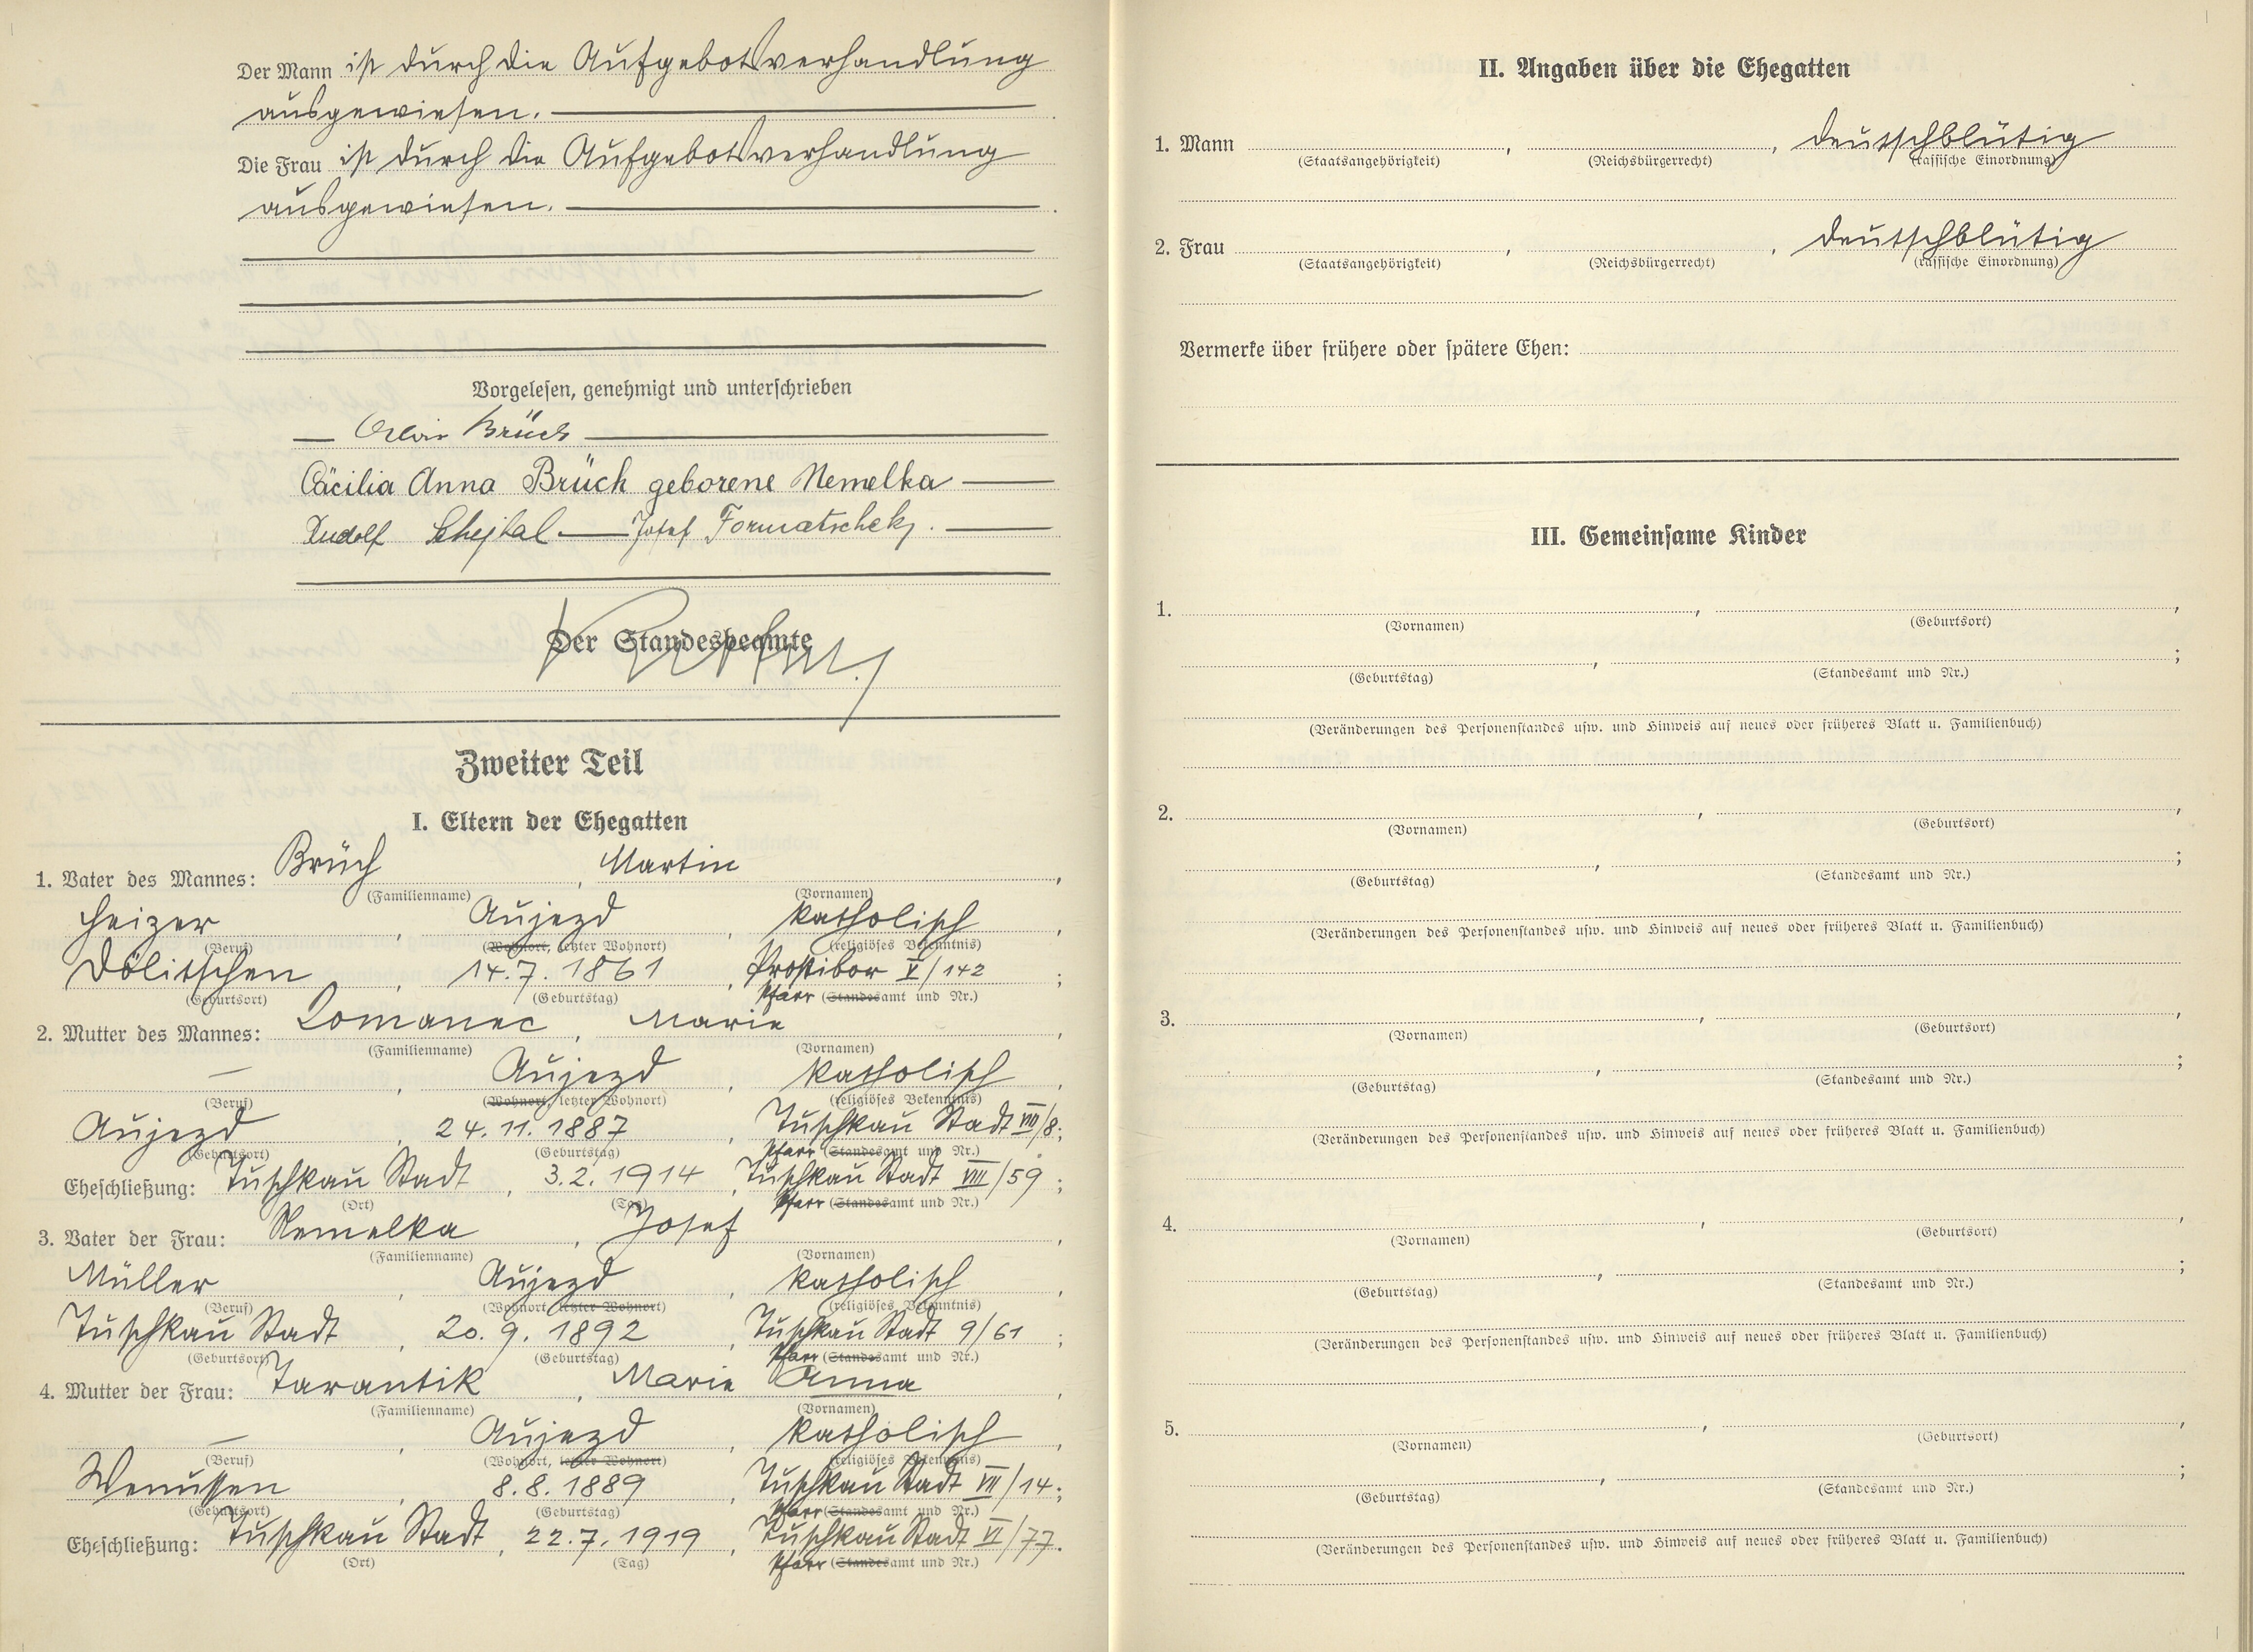 Der Mann ist durch die Aufgebotsverhandlung
ausgewiesen.
Die Frau ist durch die Aufgebotsverhandlung
ausgewiesen.
Vorgelesen, genehmigt und unterschrieben
Brüch
Cäcilia Anna Brüch geborene Nemelka
Rudolf Schejbal Josef Formatschek.
Der Standesbeamte
Zweiter Teil
I. Eltern der Ehegatten
1. Vater des Mannes: Brüch, Martin,
(Familienname) (Vornamen)
Heizer, Aujezd, katholisch,
(Beruf) (Wohnort, letzter Wohnort) (religiöses Bekenntnis)
Dölitschen, 14.7.1861, Prostibor V/142;
(Geburtsort) (Geburtstag) Pfarr (Standesamt und Nr.)
2. Mutter des Mannes: Lomanec, Marie,
(Familienname) (Vornamen)
—, Aujezd, katholisch,
(Beruf) (Wohnort, letzter Wohnort) (religiöses Bekenntnis)
Aujezd, 24.11.1887, Tuschkau Stadt VIII/8;
(Geburtsort) (Geburtstag) Pfarr (Standesamt und Nr.)
Eheschließung: Tuschkau Stadt, 3.2.1914, Tuschkau Stadt VIII/59;
(Ort) (Tag) Pfarr (Standesamt und Nr.)
3. Vater der Frau: Nemelka, Josef,
(Familienname) (Vornamen)
Müller, Aujezd, katholisch,
(Beruf) (Wohnort, letzter Wohnort) (religiöses Bekenntnis)
Tuschkau Stadt, 20.9.1892, Tuschkau Stadt 9/61;
(Geburtsort) (Geburtstag) Pfarr (Standesamt und Nr.)
4. Mutter der Frau: Tarantik, Marie Anna,
(Familienname) (Vornamen)
—, Aujezd, katholisch,
(Beruf) (Wohnort, letzter Wohnort) (religiöses Bekenntnis)
Wenussen, 8.8.1889, Tuschkau Stadt VII/14;
(Geburtsort) (Geburtstag) Pfarr (Standesamt und Nr.)
Eheschließung: Tuschkau Stadt, 22.7.1919, Tuschkau Stadt VI/77.
(Ort) (Tag) Pfarr (Standesamt und Nr.)
II. Angaben über die Ehegatten
1. Mann , , deutschblütig
(Staatsangehörigkeit) (Reichsbürgerrecht) (rassische Einordnung)
2. Frau , , deutschblütig
(Staatsangehörigkeit) (Reichsbürgerrecht) (rassische Einordnung)
Vermerke über frühere oder spätere Ehen:
III. Gemeinsame Kinder
1. , ,
(Vornamen) (Geburtsort)
, ;
(Geburtstag) (Standesamt und Nr.)
(Veränderungen des Personenstandes usw. und Hinweis auf neues oder früheres Blatt u. Familienbuch)
2. , ,
(Vornamen) (Geburtsort)
, ;
(Geburtstag) (Standesamt und Nr.)
(Veränderungen des Personenstandes usw. und Hinweis auf neues oder früheres Blatt u. Familienbuch)
3. , ,
(Vornamen) (Geburtsort)
, ;
(Geburtstag) (Standesamt und Nr.)
(Veränderungen des Personenstandes usw. und Hinweis auf neues oder früheres Blatt u. Familienbuch)
4. , ,
(Vornamen) (Geburtsort)
, ;
(Geburtstag) (Standesamt und Nr.)
(Veränderungen des Personenstandes usw. und Hinweis auf neues oder früheres Blatt u. Familienbuch)
5. , ,
(Vornamen) (Geburtsort)
, ;
(Geburtstag) (Standesamt und Nr.)
(Veränderungen des Personenstandes usw. und Hinweis auf neues oder früheres Blatt u. Familienbuch)